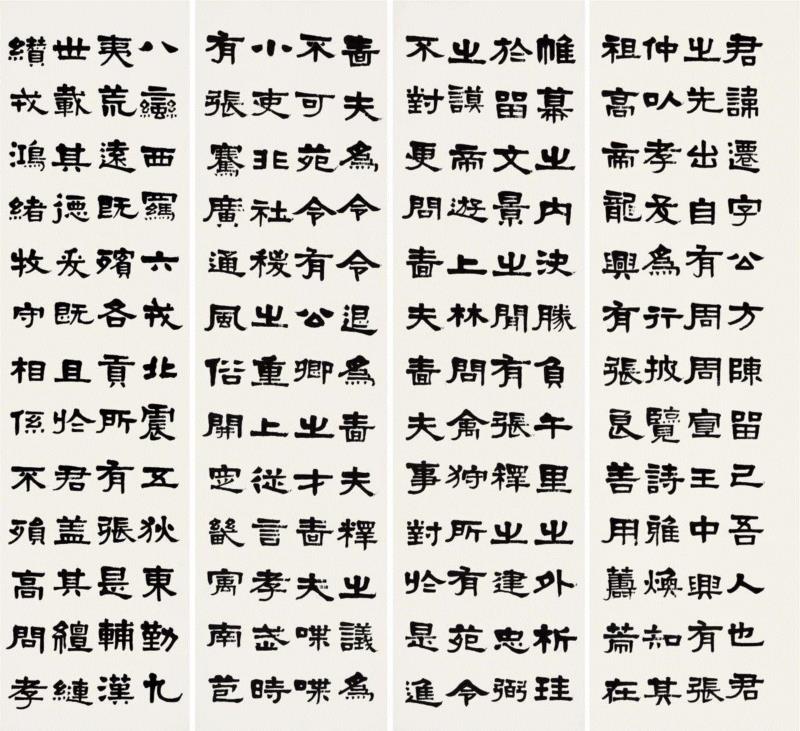 君諱遷字公方陳留己吾人也君
之先出自有周周宣王中興有張
仲以孝友為行披覽詩雅煥知其
祖高帝龍興有張良善用籌策在
帷幕之內決勝負千里之外析珪
於留文景之間有張釋之建忠弼
之謨帝遊上林問禽狩所有苑令
不對更問嗇夫嗇夫事對於是進
嗇夫為令令退為嗇夫釋之議為
不可苑令有公卿之才嗇夫喋喋
小吏非社稷之重上從言孝武時
有張騫廣通風俗開定畿寓南苞
八蠻西羈六戎北震五狄東勤九
夷荒遠既殯各貢所有張是輔漢
世載其德爰既且於君蓋其繵縺
纘戎鴻緒牧守相係不殞高問孝